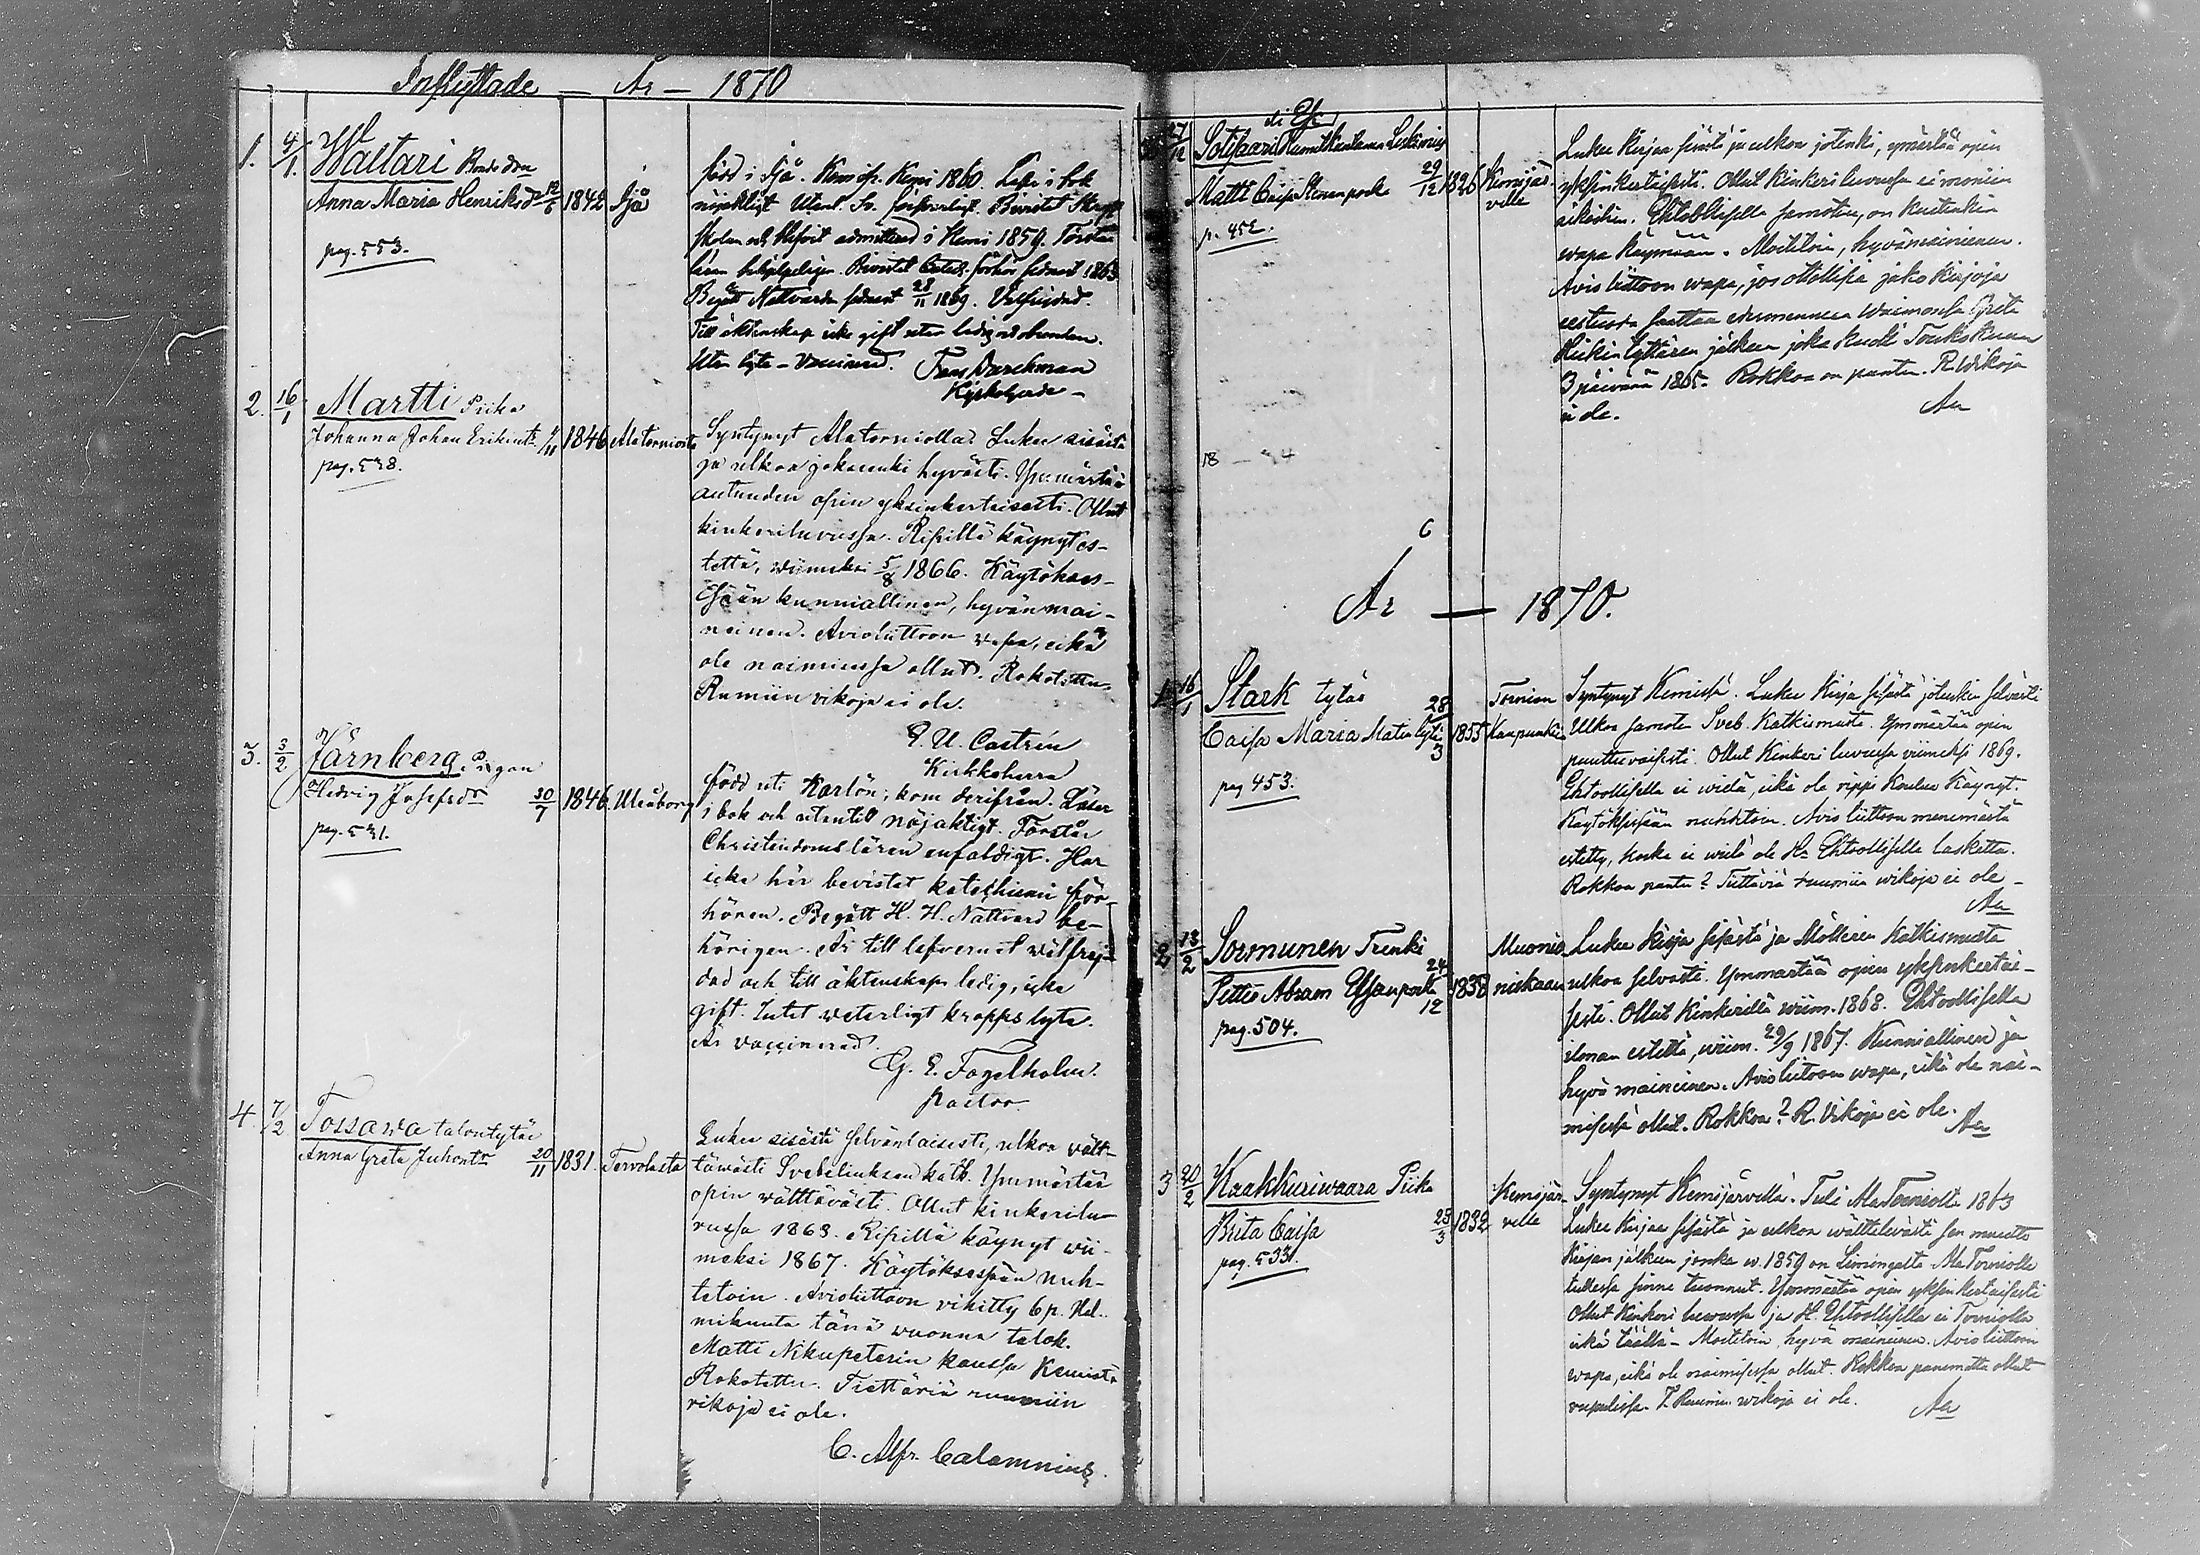 Inflyttade — År — 1870
1. 4/1. Waltari Bonde dra
Anna Maria Henriksdr 12/6 1842 Ijå
pag. 553.
född i Ijå. Kom ifr. Kemi 1860. Läser i bok
nöjaktigt Utant. Sv. försvarligt. Bevistat Skrift
skolan och blifvit admitterad i Kemi 1859. Förstår
läran behjelpligen. Bevistat Catech. förhör sednast 1863
Begått Nattvarden sednast 28/11 1869. Välfrejdad.
Till äktenskap icke gift utan ledig
Utan lyte – Vaccinerad. Frans Durchman
Kyrkoherde –
2. 16/1 Martti Piika
Johanna Johan Erikint. /11 1846 Alatorniosta
pag. 538.
Syntynyt Alatorniolla. Lukee sisästä
ja ulkoa jokseenki hyvästi. Ymmärtää
autuuden opin yksinkertaisesti. Ollut
kinkeriluvussa. Ripillä käynyt es-
tettä, wiimeksi 5/8 1866. Käytökses-
sään kunniallinen, hyvänmai-
neinen. Avioliittoon vapa, eikä
ole naimisessa ollut. Rokotettu,
Rumiin vikoja ei ole.
E. U. Castrén
Kirkkoherra
3. 3/2 Järnberg, Pigan
Hedvig Josefsdr 30/7 1846 Uleåborg
pag. 531.
född uti Karlön, kom derifrån. Läser
i bok och utantill nöjaktigt. Förstår
Christendomsläran enfaldigt. Har
icke här bevistat katechismi för-
hören. Begått H. H. Nattvard be-
hörigen. Är till lefvernet wälfrej-
dad och till äktenskap ledig, icke
gift. Intet veterligt kroppslyte.
Är vaccinerad.
G. E. Fogelholm.
pastor.
4. 7/2 Tossawa talontytär
Anna Greta Juhontr 20/11 1831. Tervolasta
Lukee sisästä selvänlaisesti, ulkoa vält-
täwästi Svebeliuksen katk. Ymmärtää
opin wälttävästi. Ollut kinkerilu-
vussa 1863. Ripillä käynyt wii-
meksi 1867. Käytöksessään nuh-
tetoin. Avioliittoon vihitty 6 p. Hel-
mikuuta tänä wuonna talok.
Matti Nikupeterin kanssa Kemistä
Rokotettu. Tiettäviä ruumiin
vikoja ei ole.
C. Alfr. Calamnius.
Matti Caisa Stenanpoika 29/12 1826 Kemijär-
ville
p. 452.
Lukee kirjaa sisästä ja ulkoa jotenki, ymärtää opin
yksinkertaisesti. Ollut kinkeriluvussa ei moniin
aikoihin. Ehtoollisella samoten, on kuitenkin
wapa käymään. Moititoin, hyvämaineinen.
Avioliittoon wapa,
3 päivänä 1865. Rokkoa on pantu. R. Wikoja
ei ole. Aa
År — 1870.
1 16/1 Stark tytär
Caisa Maria Matin tytär 28/3 1855 Tornion
kaupunkiin
pag 453.
Syntynyt Kemissä. Lukee Kirja sisästä jotenkin selvästi
Ulkoa samoten Sveb. Katkismusta. Ymmärtää opin
puuttuvaisesti. Ollut Kinkeri luvussa viimeksi 1869.
Ehtoollisella ei wielä, eikä ole rippi koulua käynyt.
Käytöksissään nuhteetoin. Avioliittoon menemästä
estetty, koska ei wielä ole H. Ehtoollisella laskettu.
Rokkoa pantu? Tiettäviä ruumiin wikoja ei ole –
Aa
2 13/2 Sormunen Trenki
Petter Abram Esanpoika 24/12 1838 Muonio
niskaan
pag. 504.
Lukee Kirja sisästä ja Möllerin Katkismusta
ulkoa selvästi. Ymmärtää opin yksinkertai-
sesti. Ollut Kinkerillä wiim. 1868. Ehtoollisella
ilman estettä, wiim. 29/9 1867. Kunniallinen ja
hyvä maineinen. Avioliittoon wapa, eikä ole nai-
misessa ollut. Rokkoa? R. Vikoja ei ole. Aa
3 20/2 Kaakkuriwaara Piika
Brita Caisa 23/3 1832 Kemijär-
ville
pag. 533.
Syntynyt Kemijärvellä. Tuli Ala Torniolta 1863
Lukee Kirjaa sisästä ja ulkoa wälttelevästi sen muutto
kirjan jälkeen jonka w. 1859 on Limingalta Ala Torniolle
tullessa sinne tuonnut. Ymmärtää opin yksinkertaisesti
Ollut Kinkeri luvussa ja H. Ehtoollisella ei Torniolla
eikä täällä – Moititoin, hyvä maineinen. Avioliittoon
wapa, eikä ole naimisessa ollut. Rokkoa panematta ollut
rupulissa. T. Ruumin wikoja ei ole. Aa